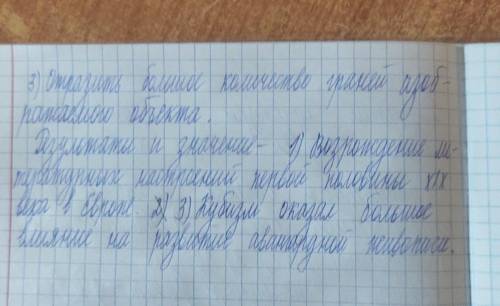 3) Отразить большое количество граней изоб-
ражаемого объекта.
Результаты и значение - 1) Возрождение ли-
тературных настроений первой половины XIX
века в Европе. 2) 3) Кубизм оказал большое
влияние на развитие авангардной живописи.